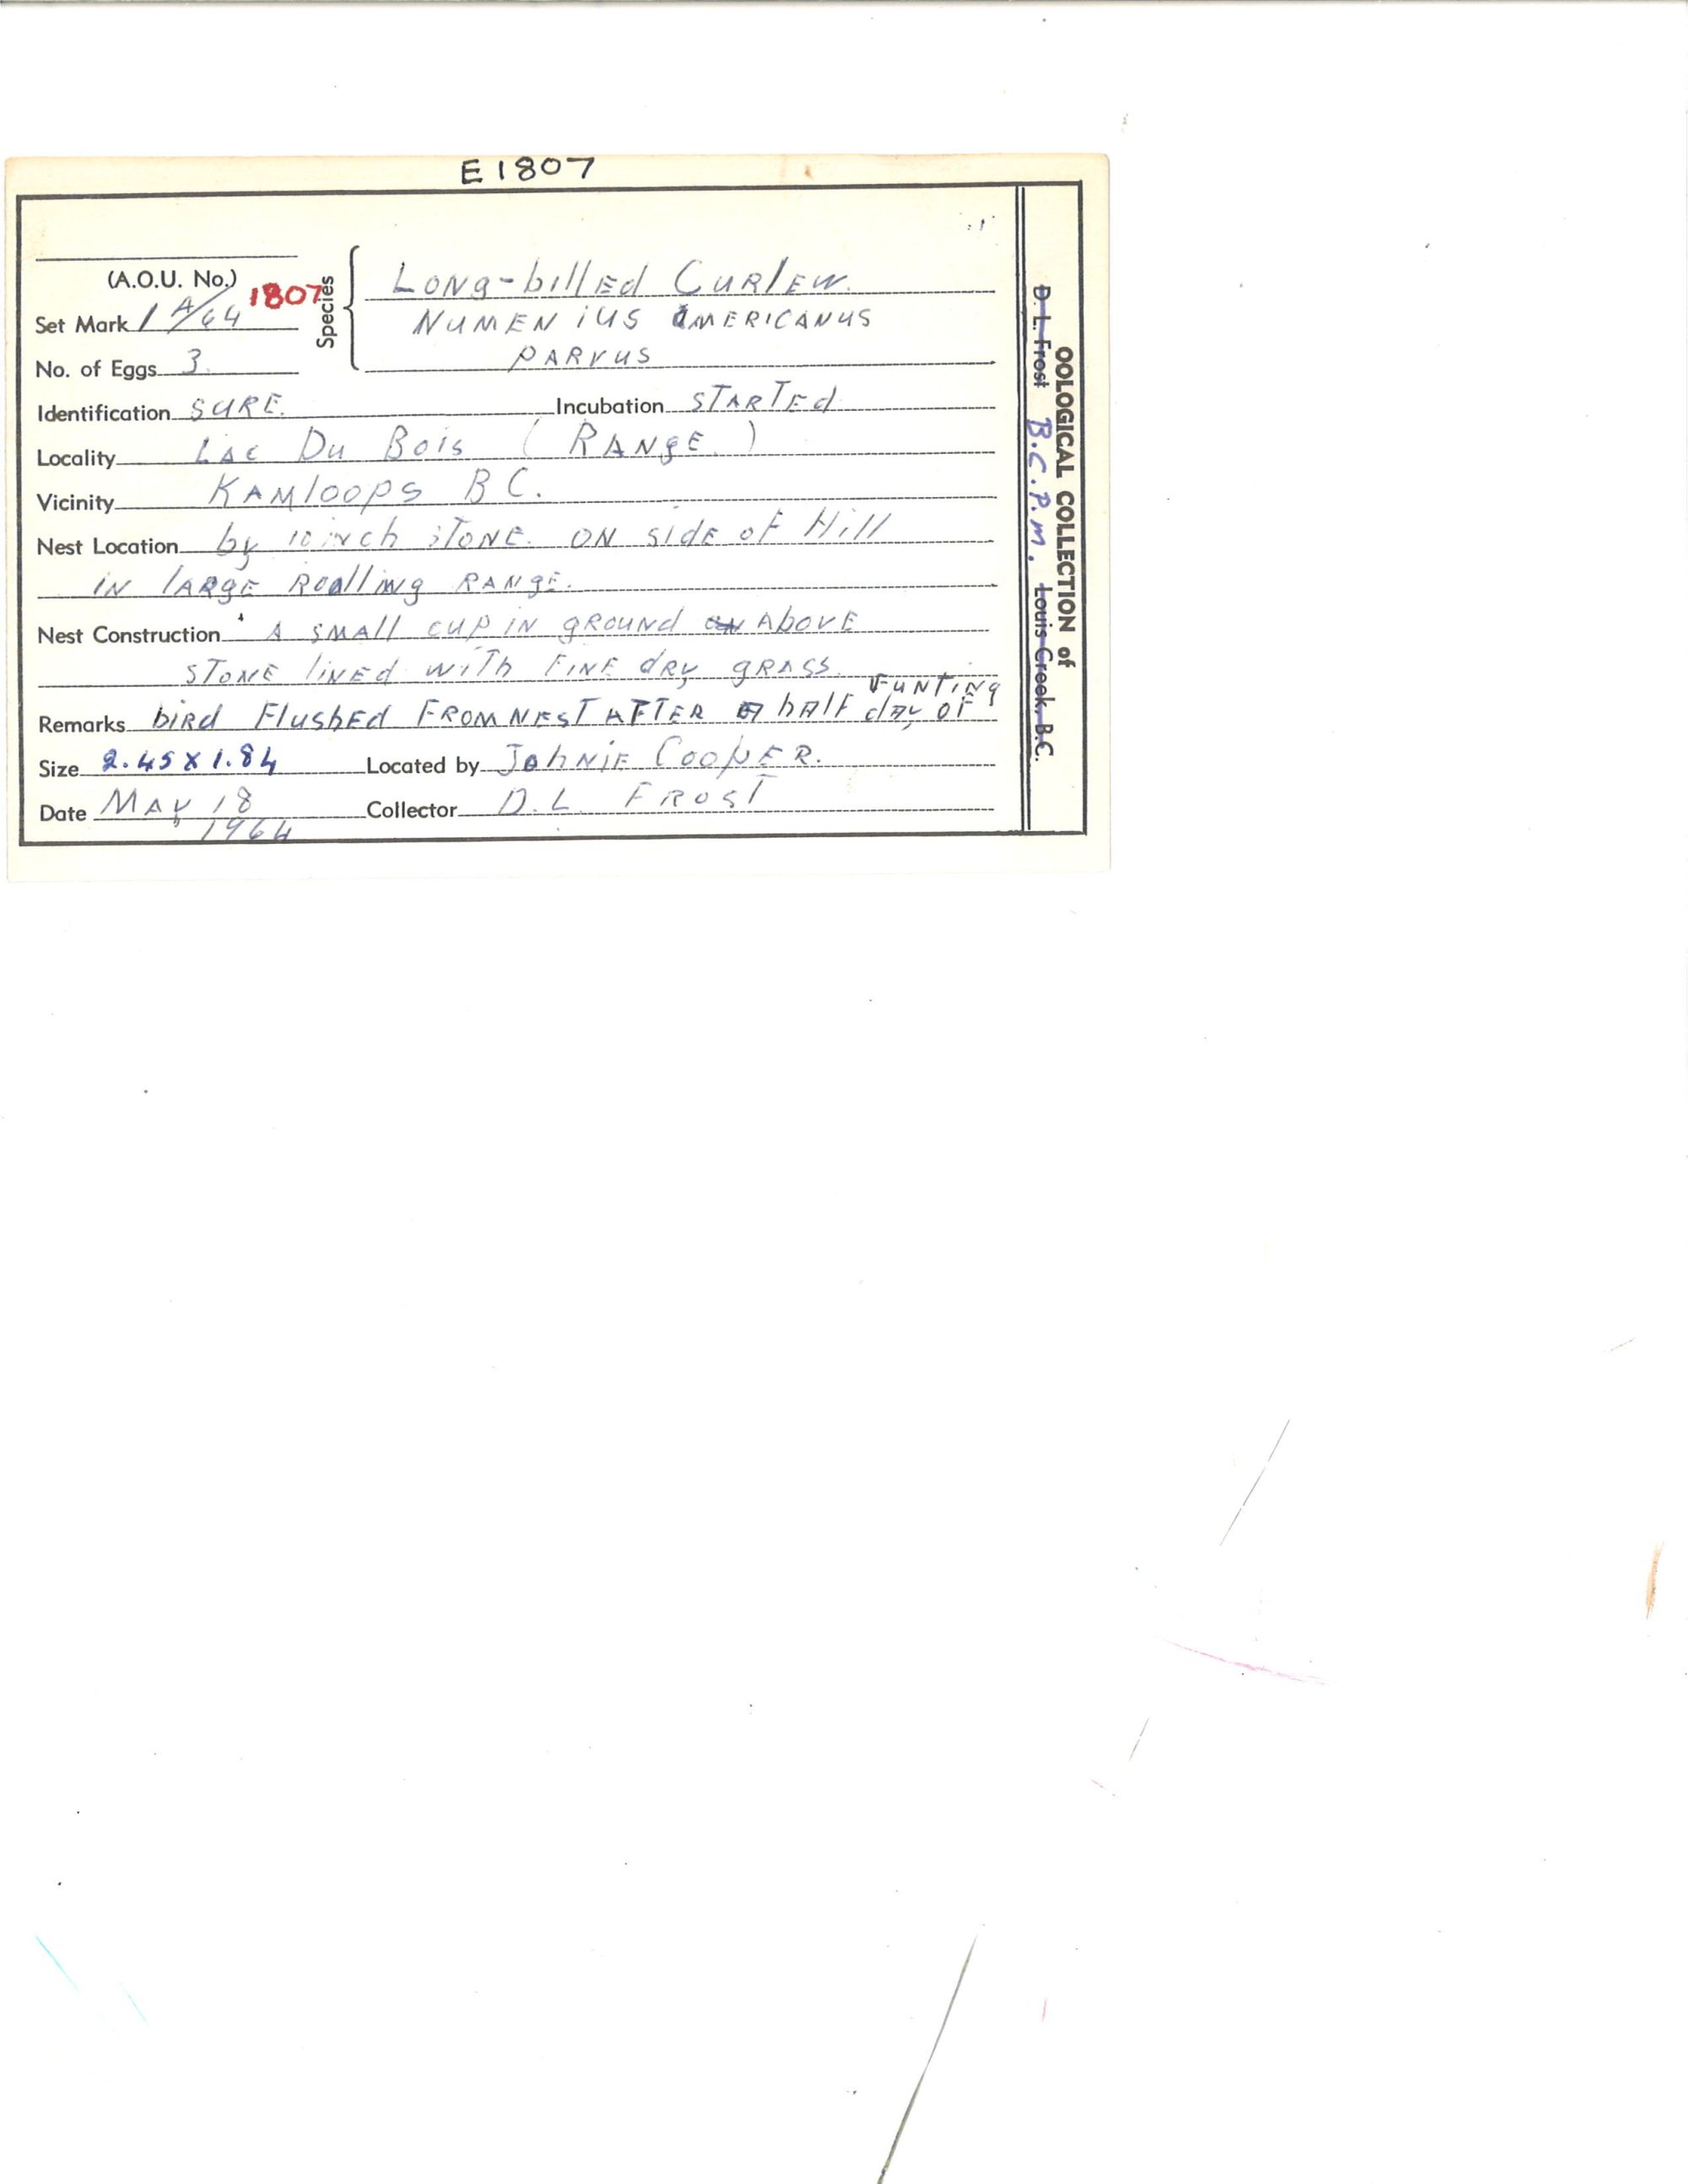 E1807
(A.O.U. No.)
1807
Set Mark 1 A/64
No. of Eggs 3
Species
Long-billed Curlew.
Numenius americanus
parvus
Identification SURE. Incubation STARTEd
Locality Lac Du Bois (RANGE.)
Vicinity KAMloops B C.
Nest Location by 10 inch STONE. ON SidE of Hill
IN lARgE Roalling RANgE.
Nest Construction A SMAll cup iN gROUNd AbovE
STONE liNEd wiTh FiNE dRy gRASS.
Remarks biRd FlushEd FROM NEST AFTER A hAlF dAy OF
Size 2.45 x 1.84 Located by JohNiE CoopER.
Date MAy 18 Collector D.L. FROST
1964
OOLOGICAL COLLECTION of
D. L. Frost B.C.P.M. Louis Creek, B.C.